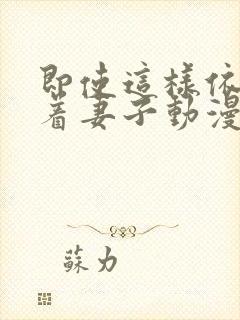 即使這樣依
著妻子動漫
蘇力